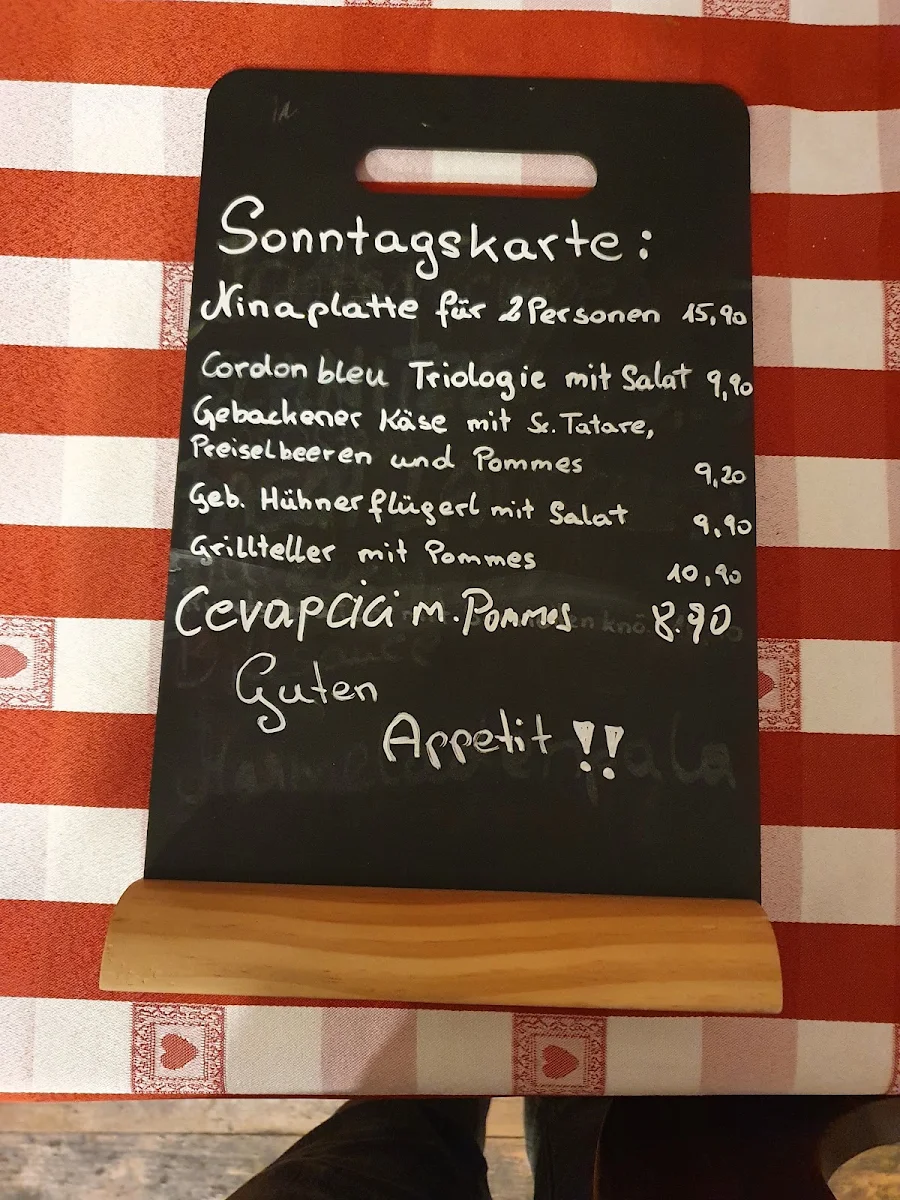 Sonntagskarte:
Ninaplatte für 2 Personen 15,90
Cordon bleu Triologie mit Salat 9,90
Gebackener Käse mit Sc. Tatare,
Preiselbeeren und Pommes 9,20
Geb. Hühnerflügerl mit Salat 9,90
Grillteller mit Pommes 10,90
Cevapcici m. Pommes 8.90
Guten
Appetit !!